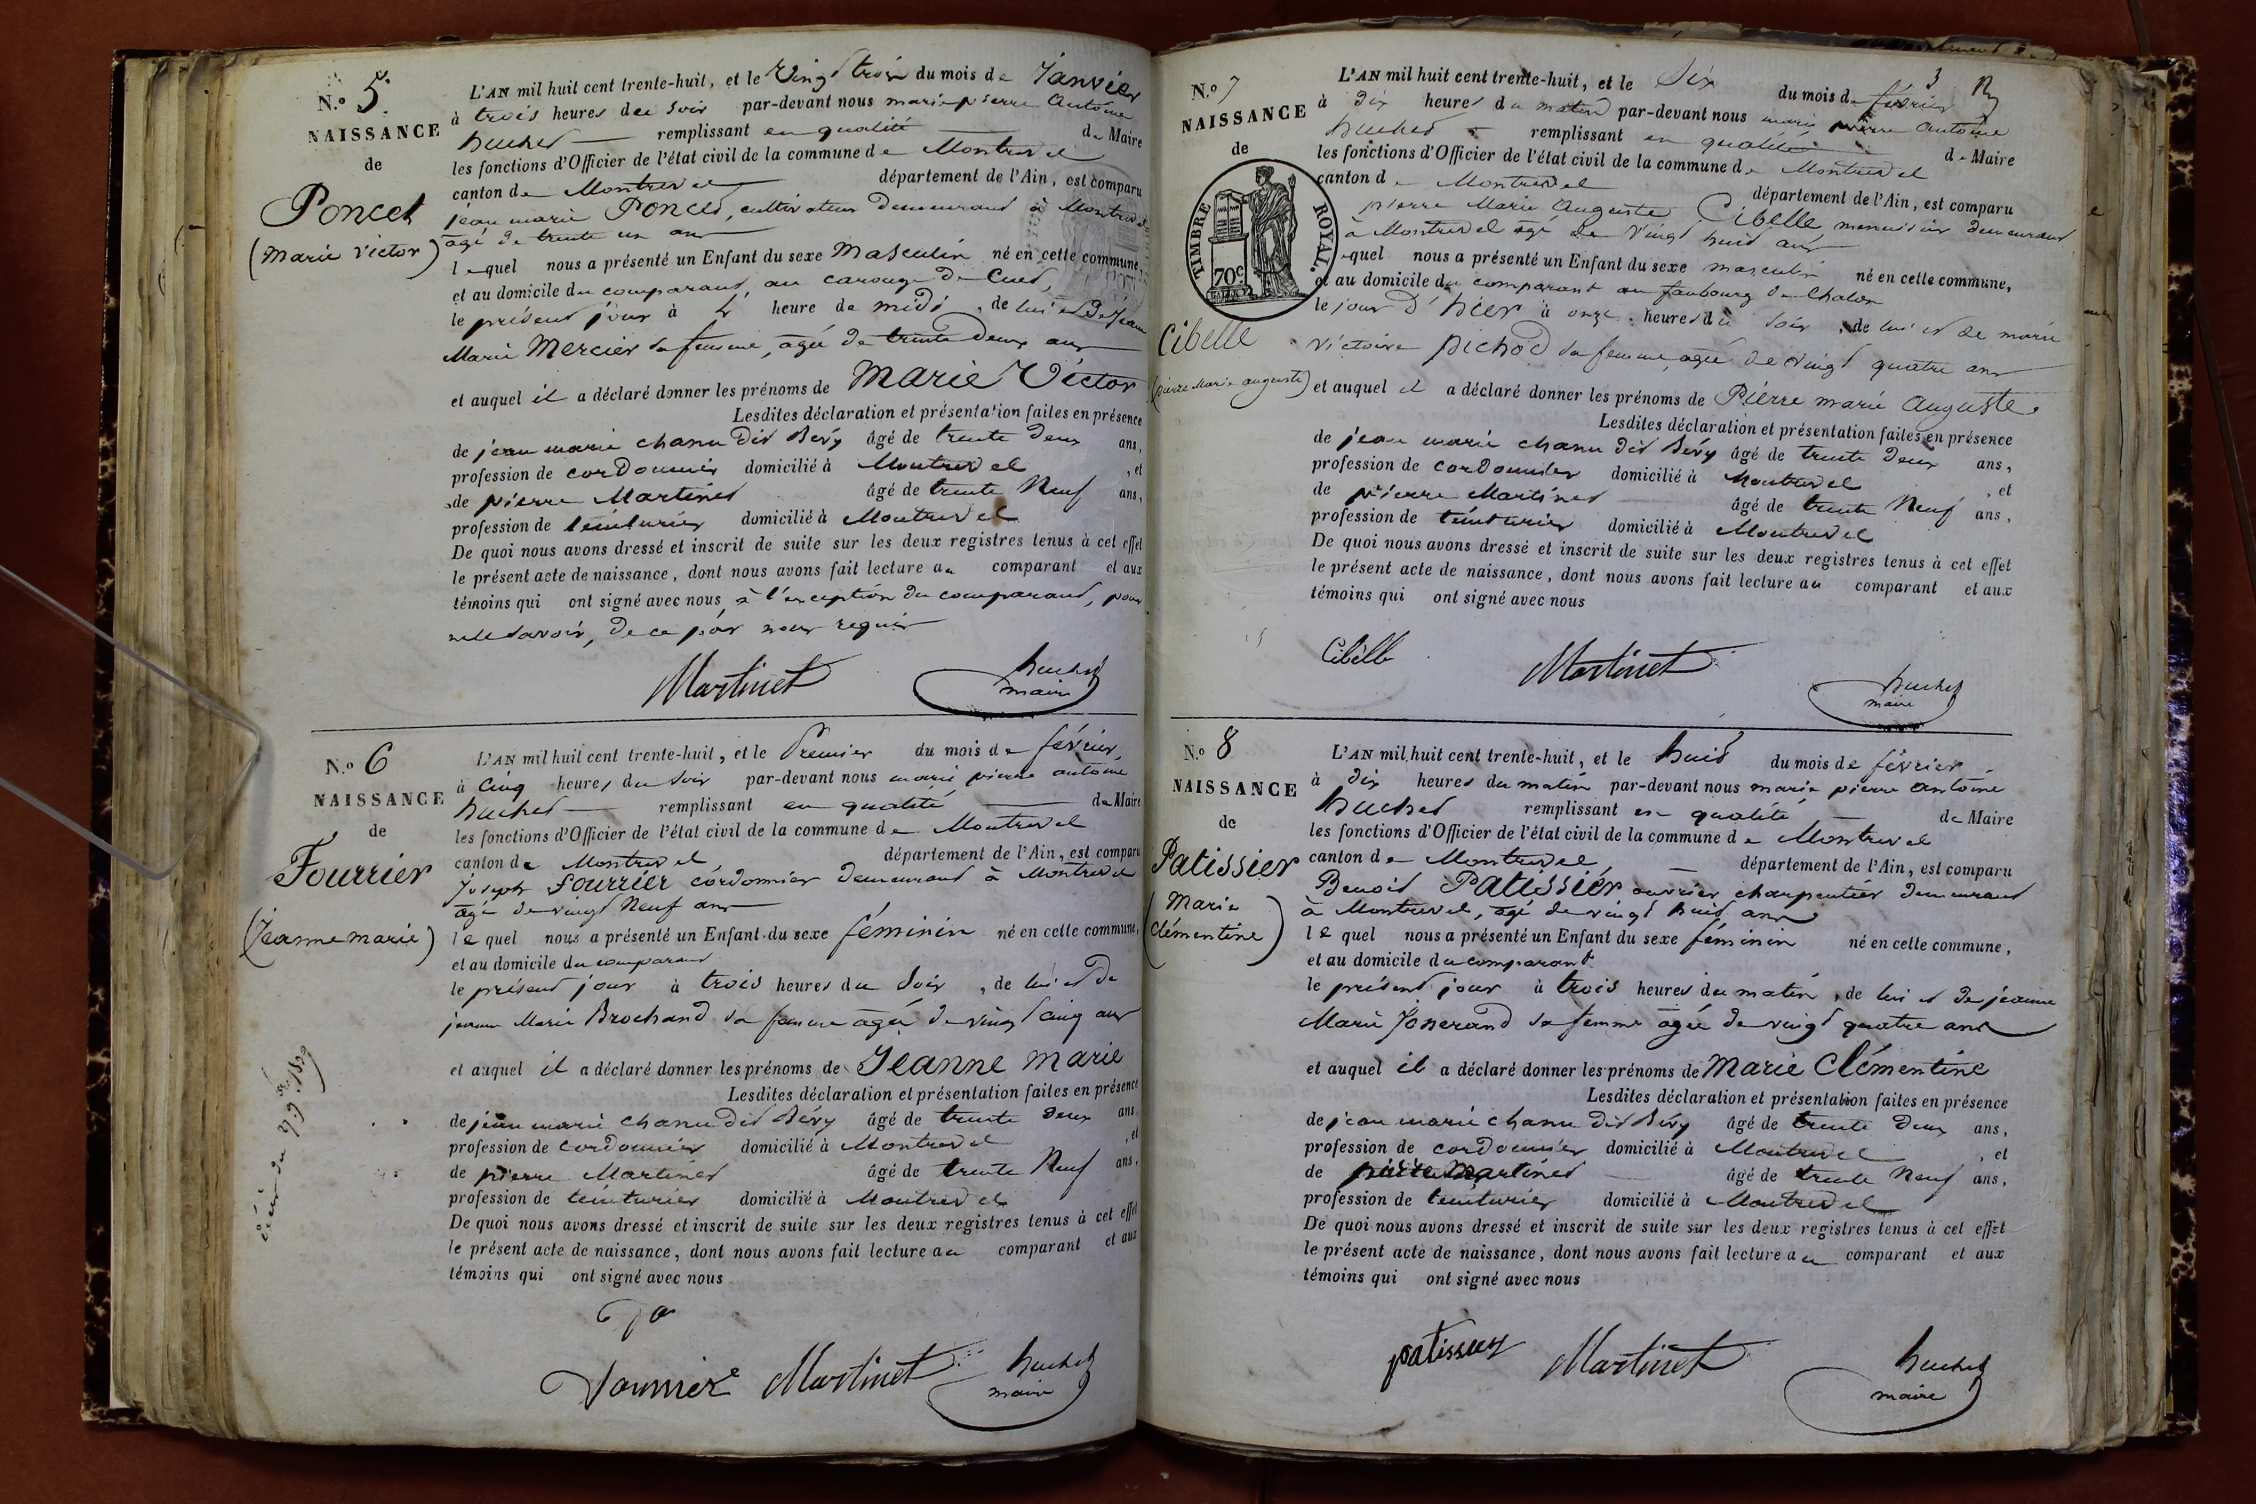 N.º 5.
NAISSANCE
de
Poncet
(Marie Victor)
L'AN mil huit cent trente-huit, et le Vingt trois du mois de Janvier
à trois heures du soir par-devant nous marie pierre Antoine
huchet remplissant en qualité de Maire
les fonctions d'Officier de l'état civil de la commune de Montrevel
canton de Montrevel département de l'Ain, est comparu
jean marie Poncet, cultivateur demeurant à Montrevel
agé de trente un ans
lequel nous a présenté un Enfant du sexe Masculin né en cette commune,
et au domicile du comparant, au carouge de Cuet,
le présent jour à heure de midi, de lui et de jeanne
Marie Mercier sa femme, agée de trente deux ans
et auquel il a déclaré donner les prénoms de Marie Victor
Lesdites déclaration et présentation faites en présence
de jean marie chanu dit Bévy âgé de trente deux ans,
profession de cordonnier domicilié à Montrevel, et
de pierre Martinet âgé de trente Neuf ans,
profession de teinturier domicilié à Montrevel
De quoi nous avons dressé et inscrit de suite sur les deux registres tenus à cet effet
le présent acte de naissance, dont nous avons fait lecture au comparant et aux
témoins qui ont signé avec nous, à l'exception du comparant, pour
ne le savoir, de ce par nous requis
Martinet huchet
maire
N.º 6
NAISSANCE
de
Fourrier
(Jeanne marie)
L'AN mil huit cent trente-huit, et le Premier du mois de février
à Cinq heures du soir par-devant nous marie pierre antoine
huchet remplissant en qualité de Maire
les fonctions d'Officier de l'état civil de la commune de Montrevel
canton de Montrevel, département de l'Ain, est comparu
Joseph Fourrier cordonnier demeurant à Montrevel
agé de vingt Neuf ans
lequel nous a présenté un Enfant du sexe féminin né en cette commune,
et au domicile du comparant
le présent jour à trois heures du soir, de lui et de
jeanne Marie Brochand sa femme agée de vingt cinq ans
et auquel il a déclaré donner les prénoms de Jeanne marie
Lesdites déclaration et présentation faites en présence
de jean marie chanu dit Bévy âgé de trente deux ans,
profession de cordonnier domicilié à Montrevel, et
de pierre Martinet âgé de trente Neuf ans,
profession de teinturier domicilié à Montrevel
De quoi nous avons dressé et inscrit de suite sur les deux registres tenus à cet effet
le présent acte de naissance, dont nous avons fait lecture au comparant et aux
témoins qui ont signé avec nous
Martinet huchet
maire
3
N.º 7
NAISSANCE
de
TIMBRE ROYAL.
70c.
Cibelle
(pierre Marie auguste)
L'AN mil huit cent trente-huit, et le Six du mois de février
à dix heures du matin par-devant nous marie pierre antoine
huchet remplissant en qualité de Maire
les fonctions d'Officier de l'état civil de la commune de Montrevel
canton de Montrevel département de l'Ain, est comparu
pierre Marie Auguste Cibelle, menuisier demeurant
à Montrevel agé de vingt huit ans
lequel nous a présenté un Enfant du sexe masculin né en cette commune,
et au domicile du comparant au faubourg de Chalon
le jour d'hier à onze heures du soir, de lui et de marie
victoire pichod sa femme, agée de vingt quatre ans
et auquel il a déclaré donner les prénoms de Pierre marie Auguste.
Lesdites déclaration et présentation faites en présence
de jean marie chanu dit Bévy âgé de trente deux ans,
profession de cordonnier domicilié à Montrevel, et
de pierre Martinet âgé de trente Neuf ans,
profession de teinturier domicilié à Montrevel
De quoi nous avons dressé et inscrit de suite sur les deux registres tenus à cet effet
le présent acte de naissance, dont nous avons fait lecture au comparant et aux
témoins qui ont signé avec nous
Cibelle Martinet huchet
maire
N.º 8
NAISSANCE
de
Patissier
(Marie
Clémentine)
L'AN mil huit cent trente-huit, et le huit du mois de février
à dix heures du matin par-devant nous marie pierre antoine
huchet remplissant en qualité de Maire
les fonctions d'Officier de l'état civil de la commune de Montrevel
canton de Montrevel, département de l'Ain, est comparu
Benoit Patissier ouvrier charpentier demeurant
à Montrevel, agé de vingt huit ans
lequel nous a présenté un Enfant du sexe féminin né en cette commune,
et au domicile du comparant
le présent jour à trois heures du matin, de lui et de jeanne
Marie Jonerand sa femme agée de vingt quatre ans
et auquel il a déclaré donner les prénoms de Marie Clémentine
Lesdites déclaration et présentation faites en présence
de jean marie chanu dit Bévy âgé de trente deux ans,
profession de cordonnier domicilié à Montrevel, et
de pierre Martinet âgé de trente Neuf ans,
profession de teinturier domicilié à Montrevel
De quoi nous avons dressé et inscrit de suite sur les deux registres tenus à cet effet
le présent acte de naissance, dont nous avons fait lecture au comparant et aux
témoins qui ont signé avec nous
patissier Martinet huchet
maire